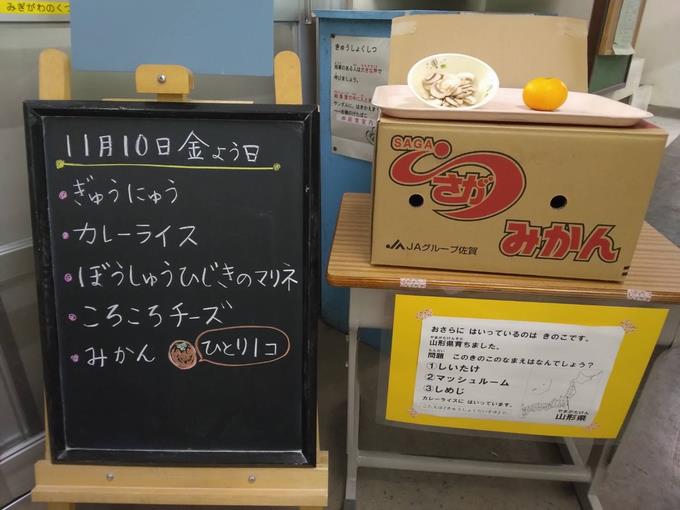 みぎがわのくつ
11月10日金よう日
ぎゅうにゅう
カレーライス
ぼうしゅうひじきのマリネ
ころころチーズ
みかん ひとり1コ
きゅうしょくしつ
SAGA
さが
みかん
JAグループ佐賀
おさらに はいっているのは きのこです。
山形県育ちました。
問題 このきのこのなまえはなんでしょう？
①しいたけ
②マッシュルーム
③しめじ
カレーライスに はいっています。
やまがたけん
山形県